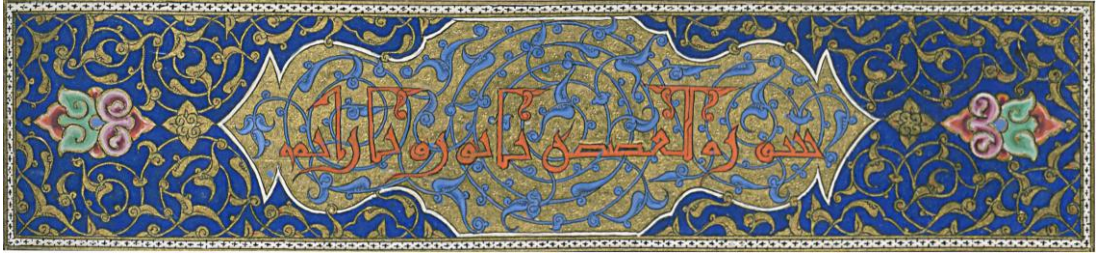 سورة القصص ثمانون وثمان آيات